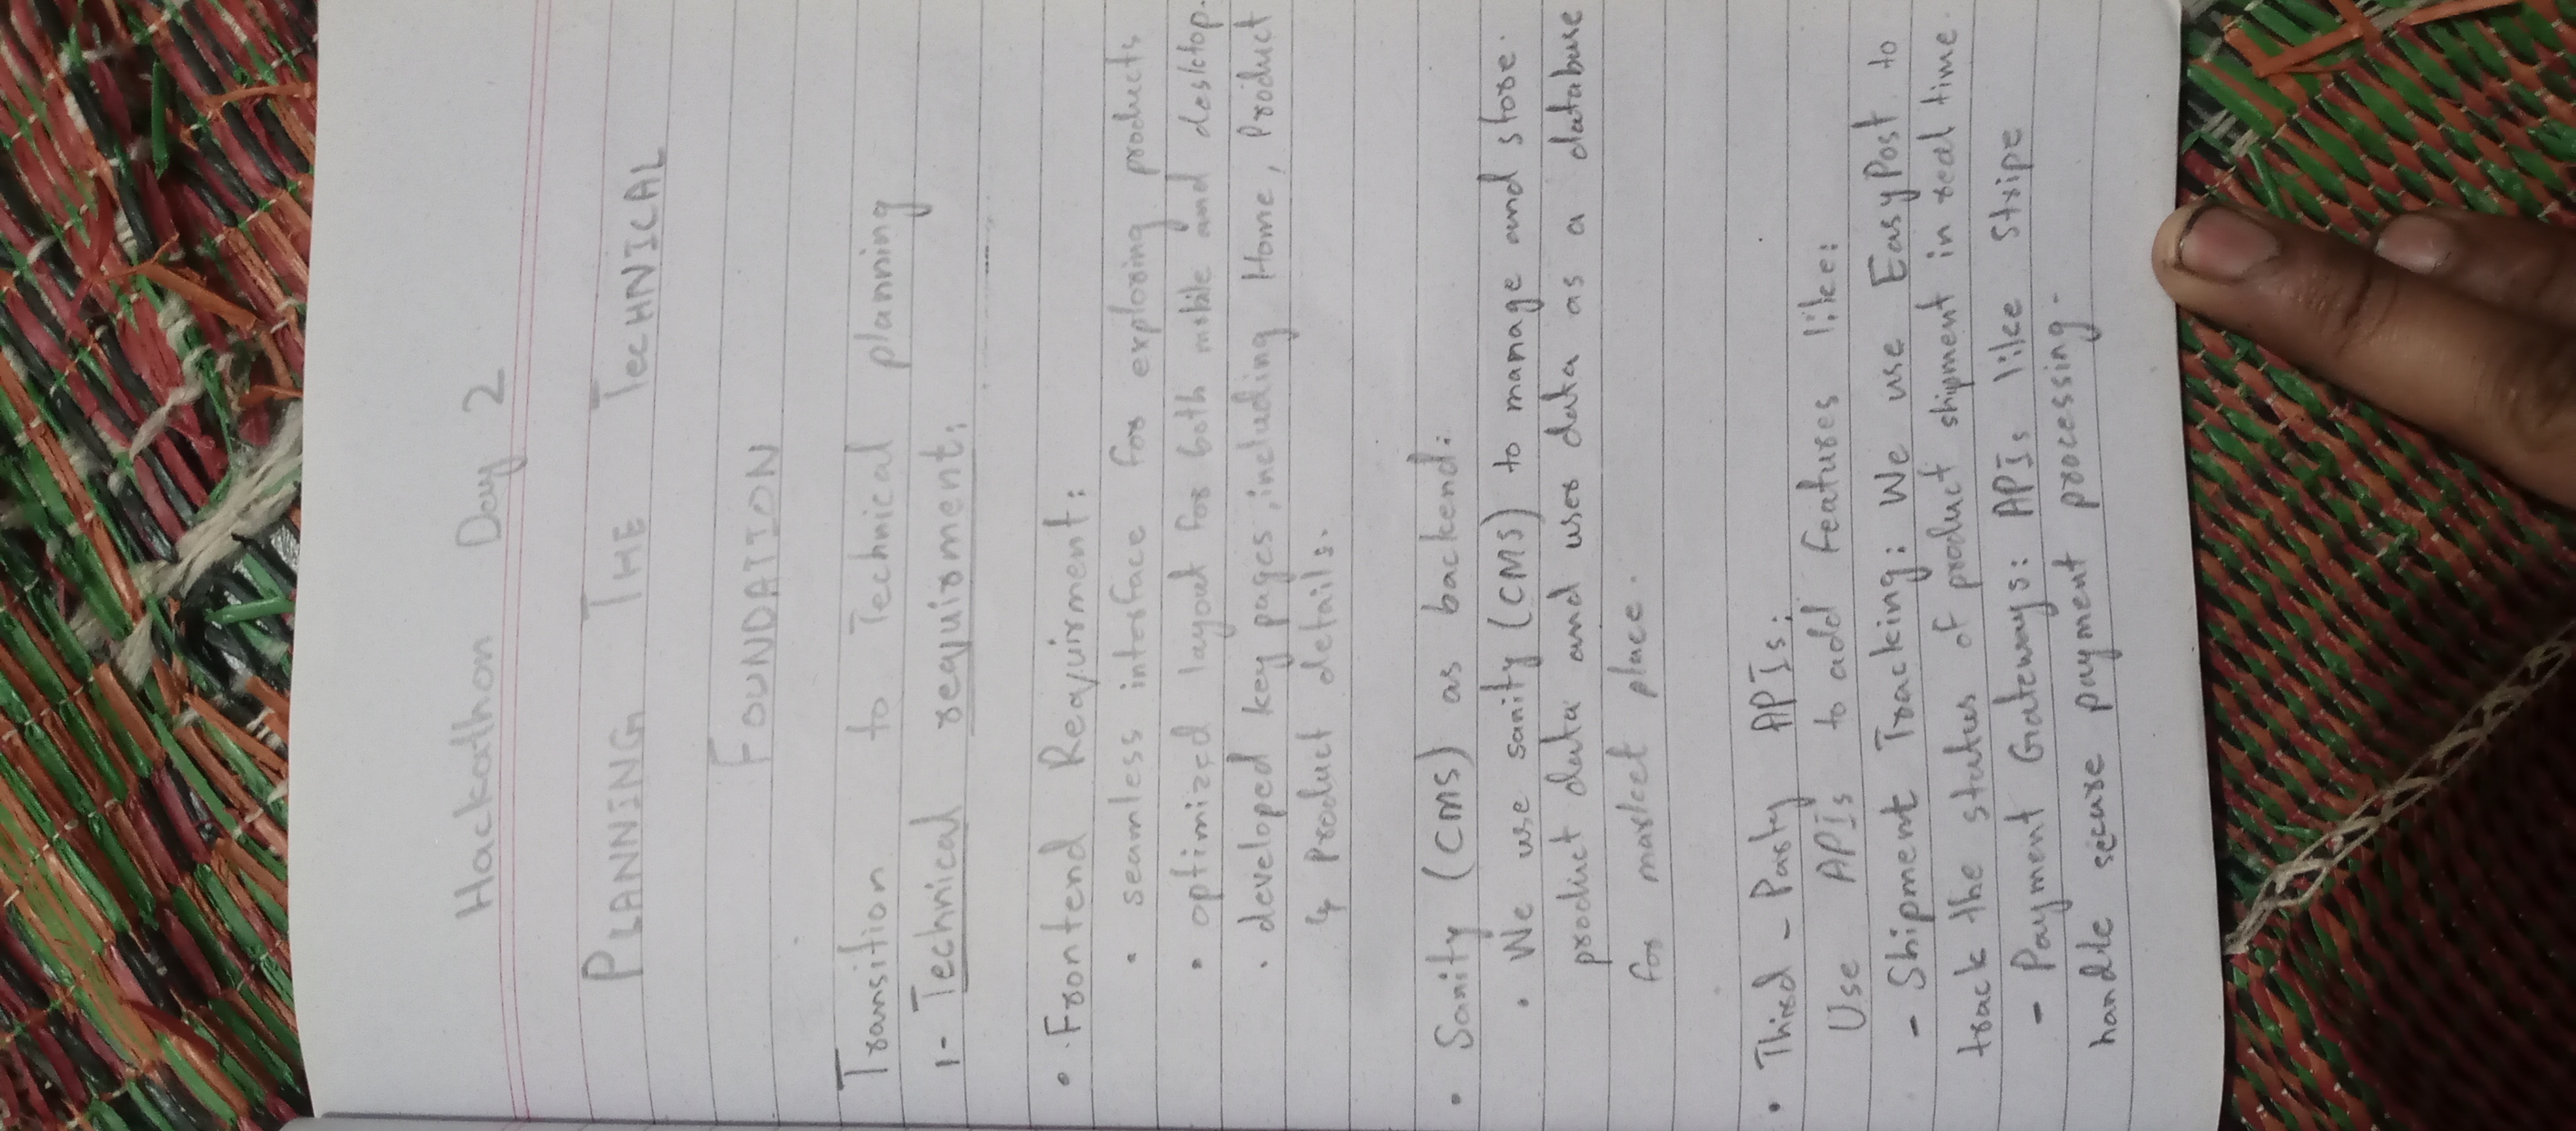 Hackathon Day 2
PLANNING THE TECHNICAL
FOUNDATION
Transition to Technical planning
1- Technical requirment:
• Frontend Requirment:
• seamless interface for exploring products
• optimized layout for both mobile and desktop.
• developed key pages, including Home, Product
& Product details.
• Sanity (CMS) as backend:
• We use sanity (CMS) to manage and store.
product data and user data as a database
for market place.
• Third-Party APIs:
Use APIs to add features like:
- Shipment Tracking: We use EasyPost to
track the status of product shipment in real time.
- Payment Gateways: APIs like Stripe
handle secure payment processing.